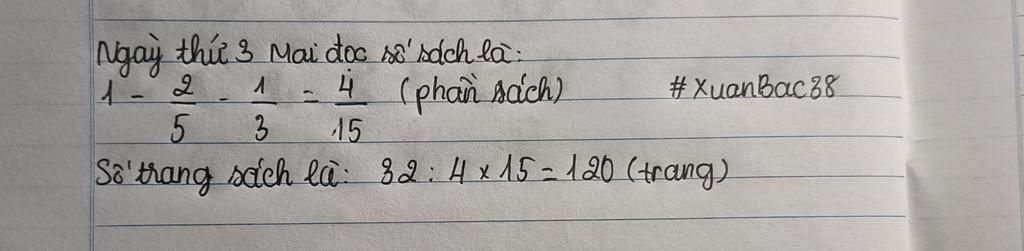 Ngày thứ 3 Mai đọc số sách là:
1 - 2/5 - 1/3 = 4/15 (phần sách) #XuanBac38
Số trang sách là: 32 : 4 x 15 = 120 (trang)